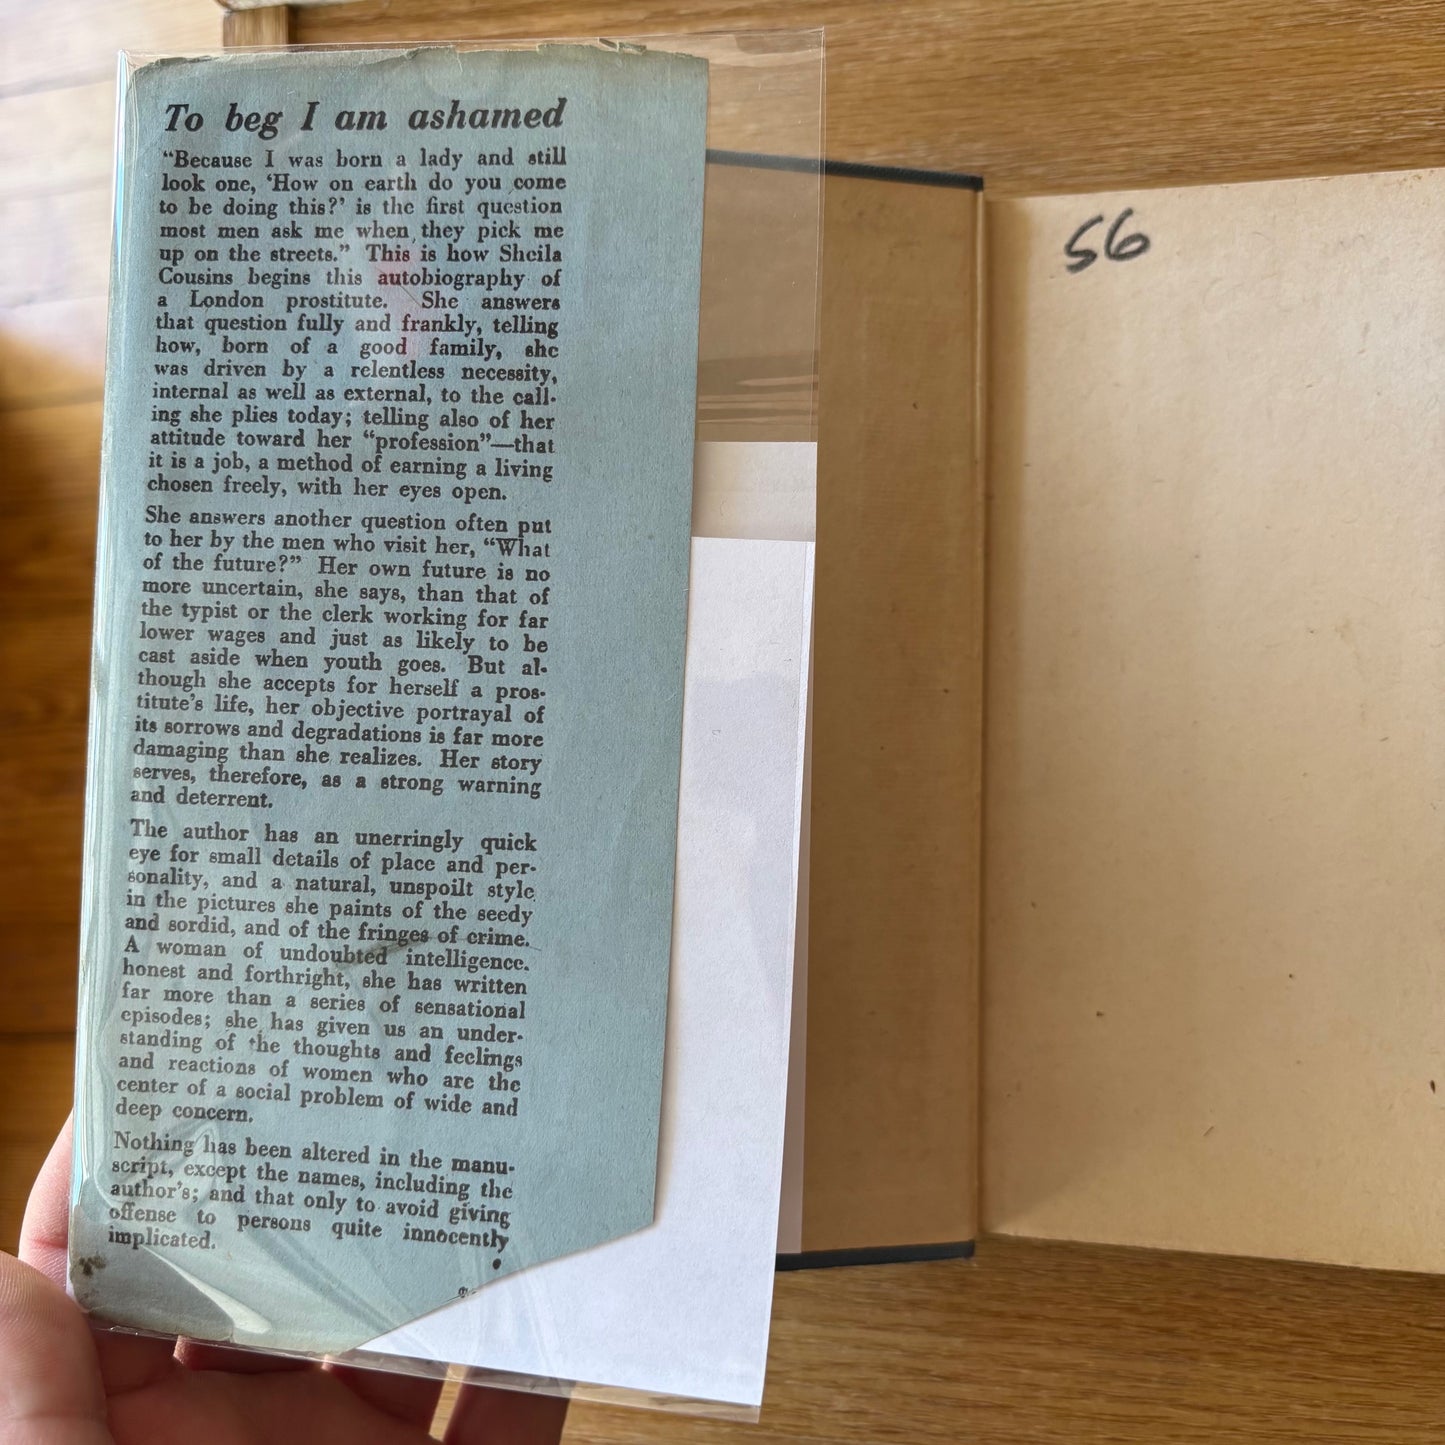 To beg I am ashamed
"Because I was born a lady and still
look one, 'How on earth do you come
to be doing this?' is the first question
most men ask me when they pick me
up on the streets." This is how Sheila
Cousins begins this autobiography of
a London prostitute. She answers
that question fully and frankly, telling
how, born of a good family, she
was driven by a relentless necessity,
internal as well as external, to the call-
ing she plies today; telling also of her
attitude toward her "profession"—that
it is a job, a method of earning a living
chosen freely, with her eyes open.
She answers another question often put
to her by the men who visit her, "What
of the future?" Her own future is no
more uncertain, she says, than that of
the typist or the clerk working for far
lower wages and just as likely to be
cast aside when youth goes. But al-
though she accepts for herself a pros-
titute's life, her objective portrayal of
its sorrows and degradations is far more
damaging than she realizes. Her story
serves, therefore, as a strong warning
and deterrent.
The author has an unerringly quick
eye for small details of place and per-
sonality, and a natural, unspoilt style
in the pictures she paints of the seedy
and sordid, and of the fringes of crime.
A woman of undoubted intelligence.
honest and forthright, she has written
far more than a series of sensational
episodes; she has given us an under-
standing of the thoughts and feelings
and reactions of women who are the
center of a social problem of wide and
deep concern.
Nothing has been altered in the manu-
script, except the names, including the
author's; and that only to avoid giving
offense to persons quite innocently
implicated.
56